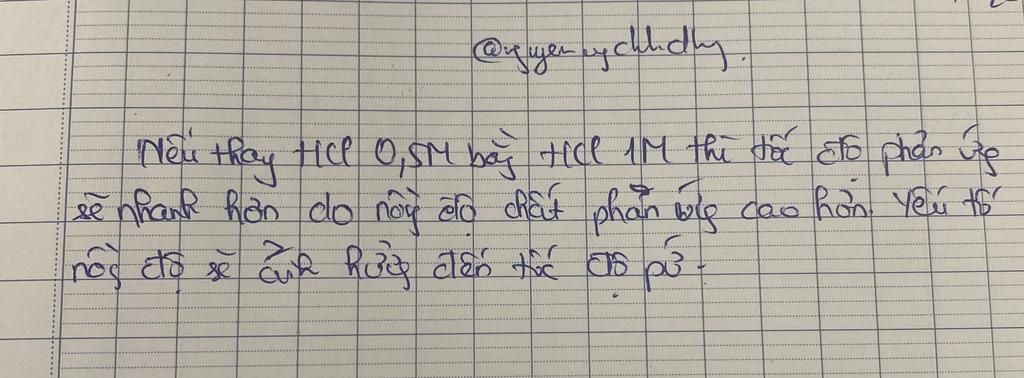 @nguyenuychh.dhy.
Nếu thay HCl 0,5M bằg HCl 1M thì tốc độ phản ứg
sẽ nhanh hơn do nồg độ chất phản ứg cao hơn. Yếu tố
nồg độ sẽ ảnh hưởg đến tốc độ pứ.